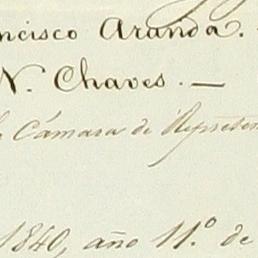 ncisco Aranda.
N. Chaves. —
Cámara de Represen
1840, año 11.º de